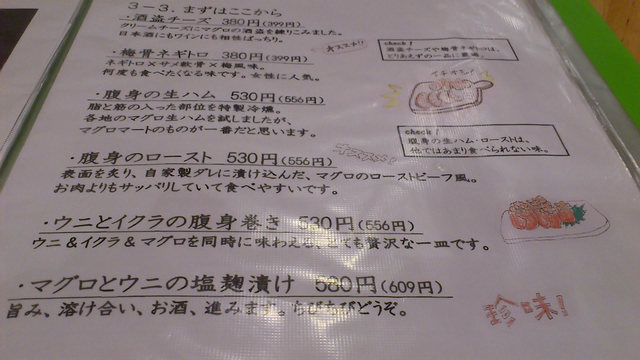 3－3．まずはここから
・酒盗チーズ 380円(399円)
クリームチーズにマグロの酒盗を練りこみました。
日本酒にもワインにも相性ばっちり。
オススメ!!
check!
酒盗チーズや梅骨ネギトロは、
とりあえずの一品に最適。
・梅骨ネギトロ 380円(399円)
ネギトロ×サメ軟骨×梅風味。
何度も食べたくなる味です。女性に人気。
イチオシ!
・腹身の生ハム 530円(556円)
脂と筋の入った部位を特製冷燻。
各地のマグロ生ハムを試しましたが、
マグロマートのものが一番だと思います。
check!
腹身の生ハム・ローストは、
他ではあまり食べられない味。
・腹身のロースト 530円(556円)
オススメ!
表面を炙り、自家製ダレに漬け込んだ、マグロのローストビーフ風。
お肉よりもサッパリしていて食べやすいです。
・ウニとイクラの腹身巻き 530円(556円)
ウニ＆イクラ＆マグロを同時に味わえる、とても贅沢な一皿です。
・マグロとウニの塩麹漬け 580円(609円)
旨み、溶け合い、お酒、進みます。ちびちびどうぞ。
味